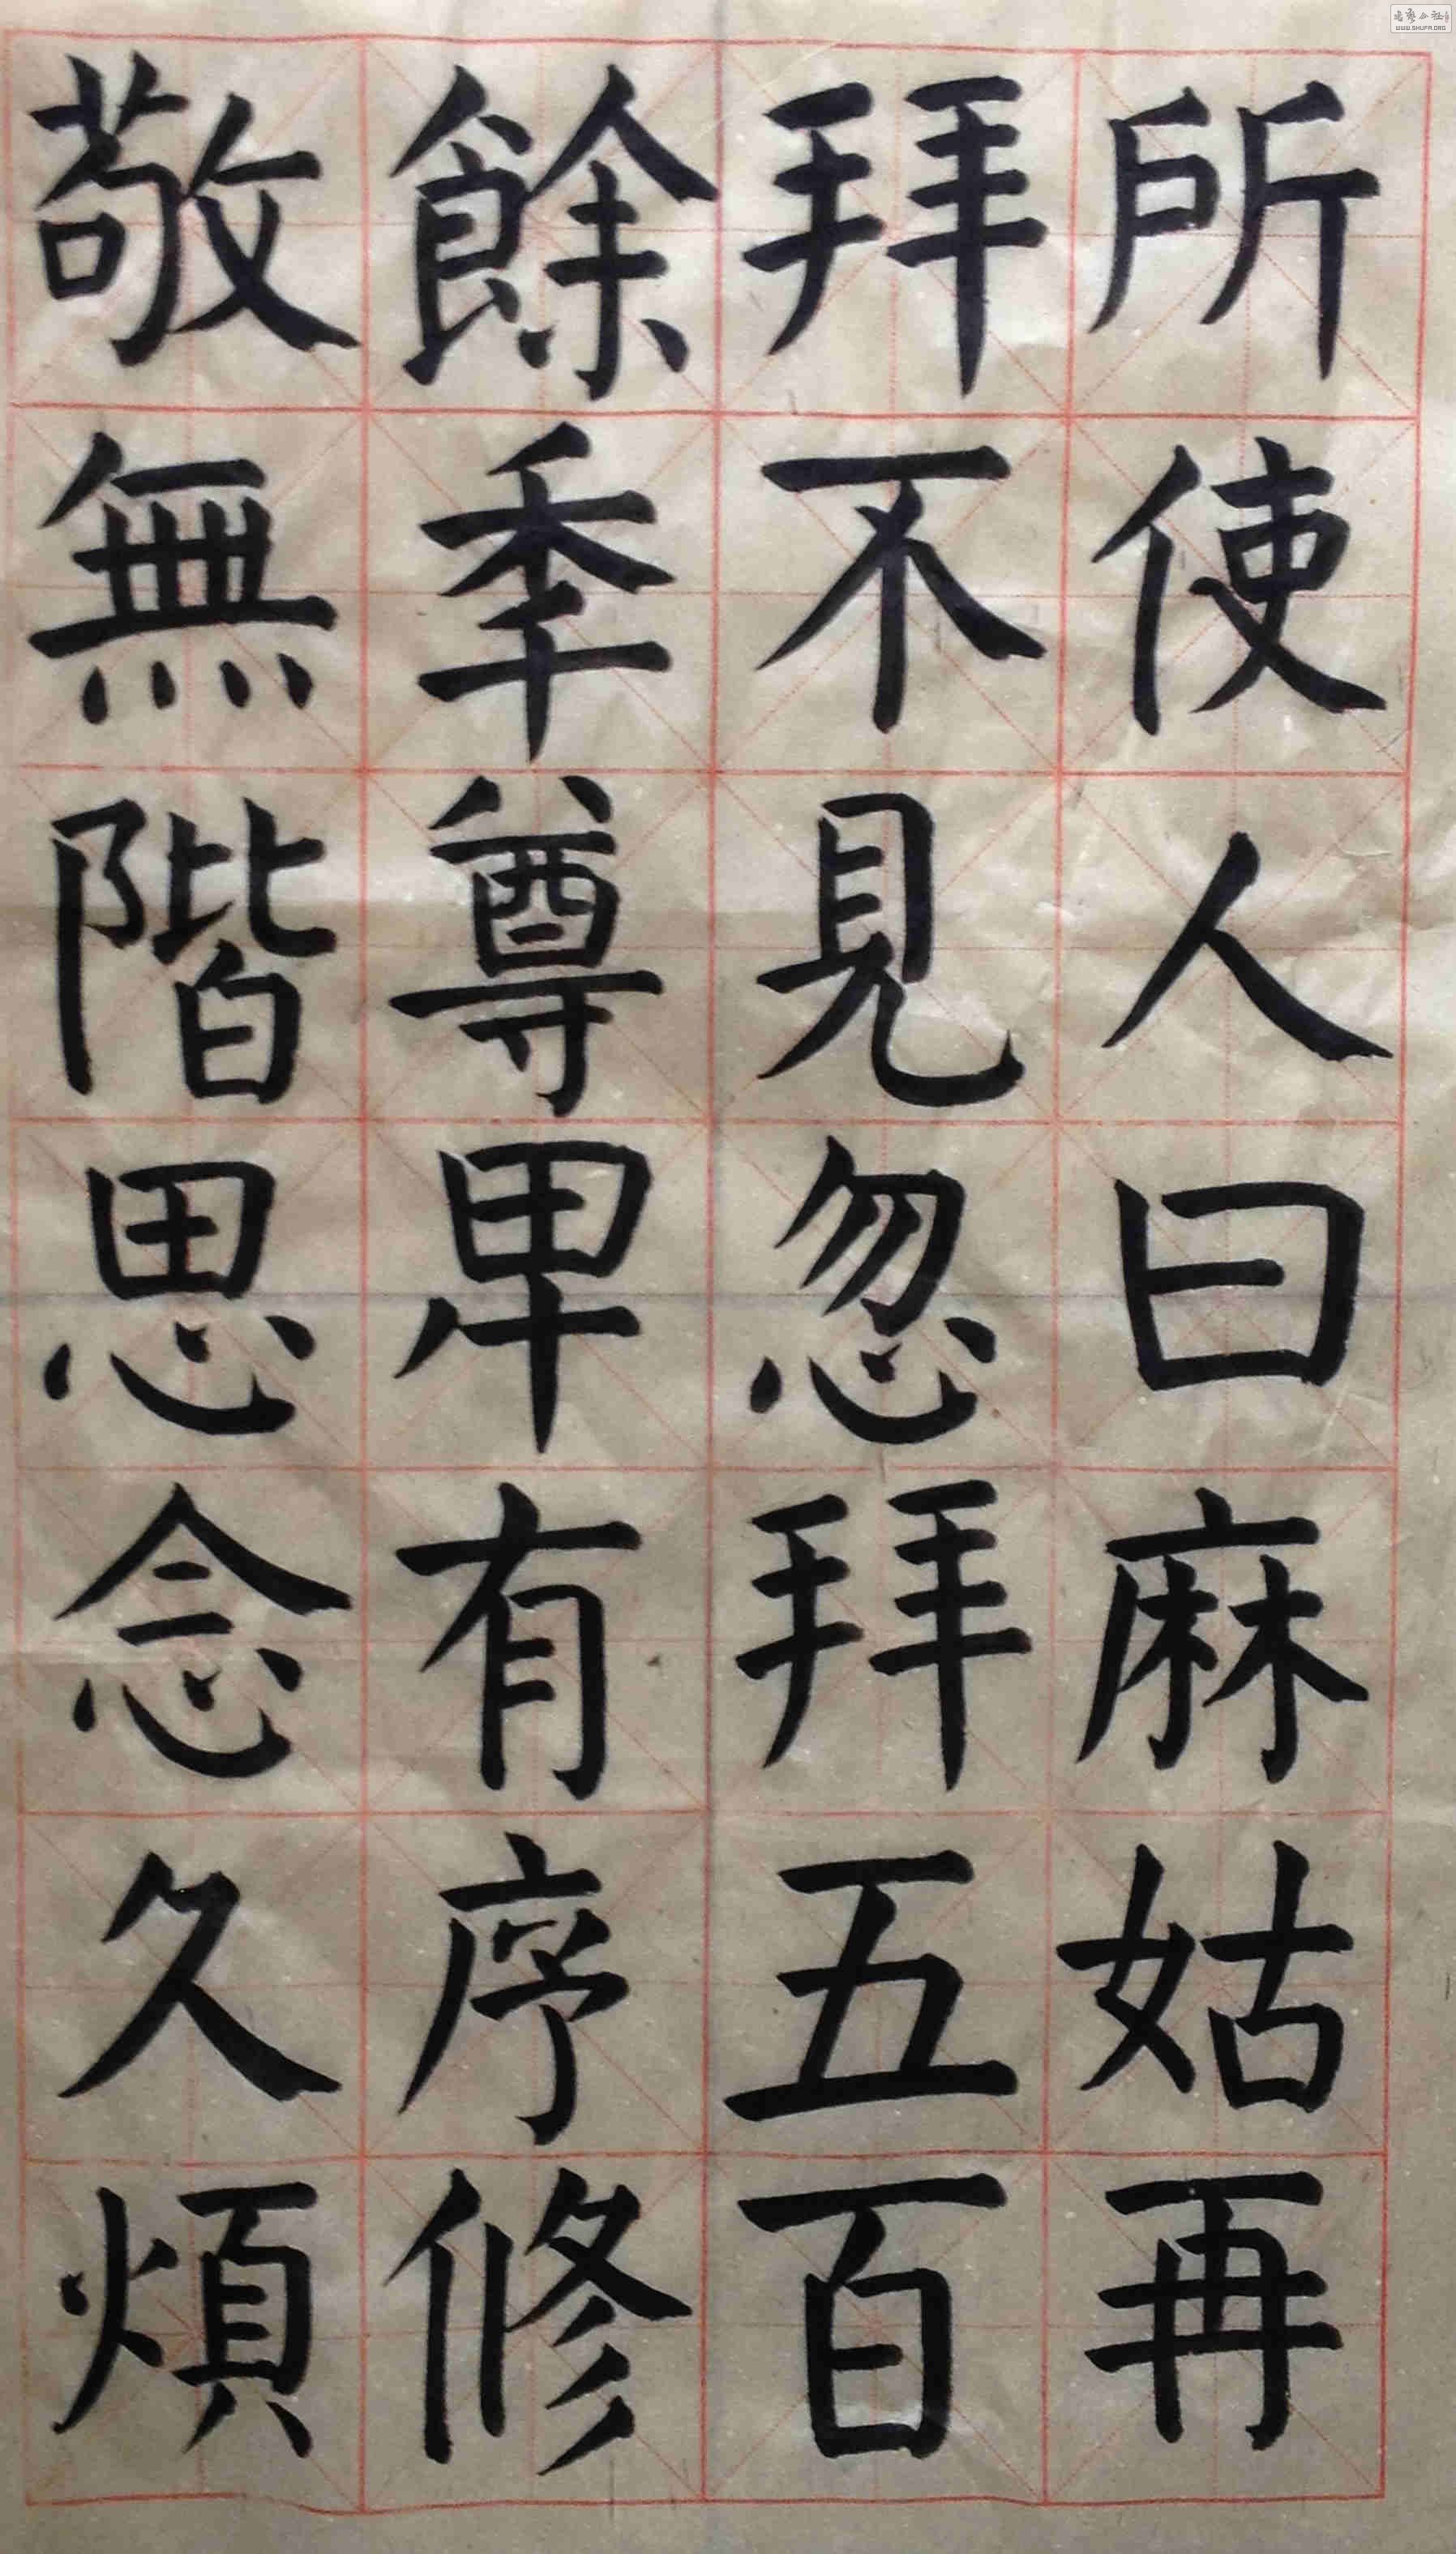 所使人曰麻姑再
拜不見忽拜五百
餘年尊卑有序修
敬無階思念久煩
WWW.SHUFA.ORG